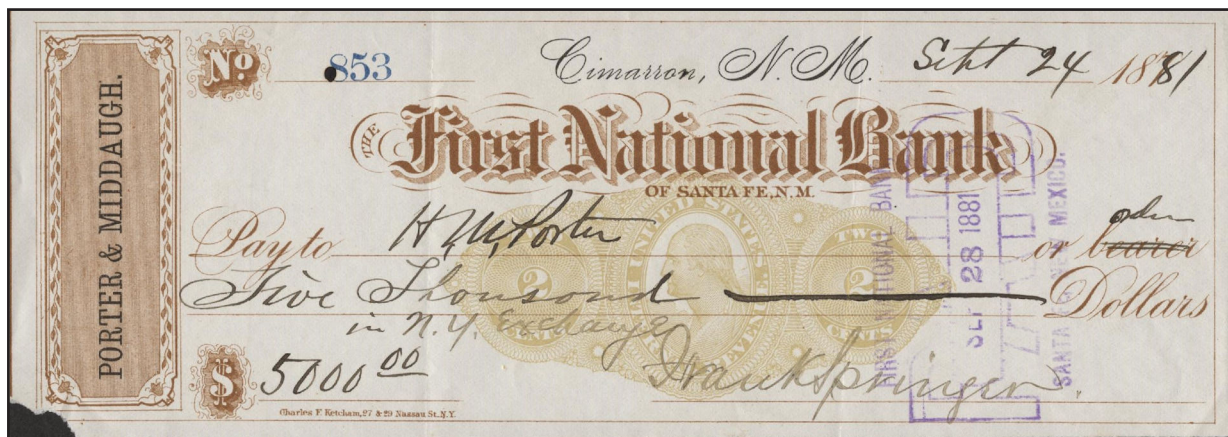 PORTER & MIDDAUGH.
No 853
Cimarron, N. M. Sept 24 1881
THE First National Bank
OF SANTA FE, N.M.
Pay to H. M. Porter or bearer order
Five Thousand Dollars
in N.Y. Exchange
$ 5000 00
Frank Springer
Charles F. Ketcham, 27 & 29 Nassau St. N.Y.
UNITED STATES
TWO
2
2
CENTS
FIRST NATIONAL BANK
PAID
SEP 28 1881
SANTA FE, NEW MEXICO.